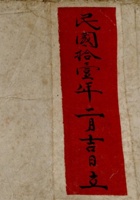 民國拾壹年二月吉日立